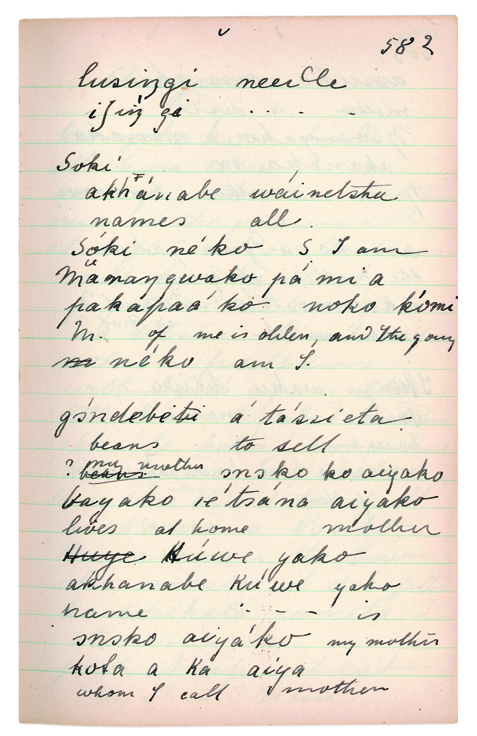 582
lusingi neerle
isingi . . .
Soki
akhánabe wáinetsha
names all.
Sóki néko S I am
Mamangwako pá mi a
pakapaá ko noko kómi
M. of me is olden, and the young
néko am I.
gindebéti á tászieta
beans to sell
? my mother snsko ko aiyako
bayako ié tsána aiyako
lives at home mother
Huye Kúwe yako
akhanabe Kúwe yako
name - - - is
snsko aiyáko my mother
kota a ka aiya
whom I call mother